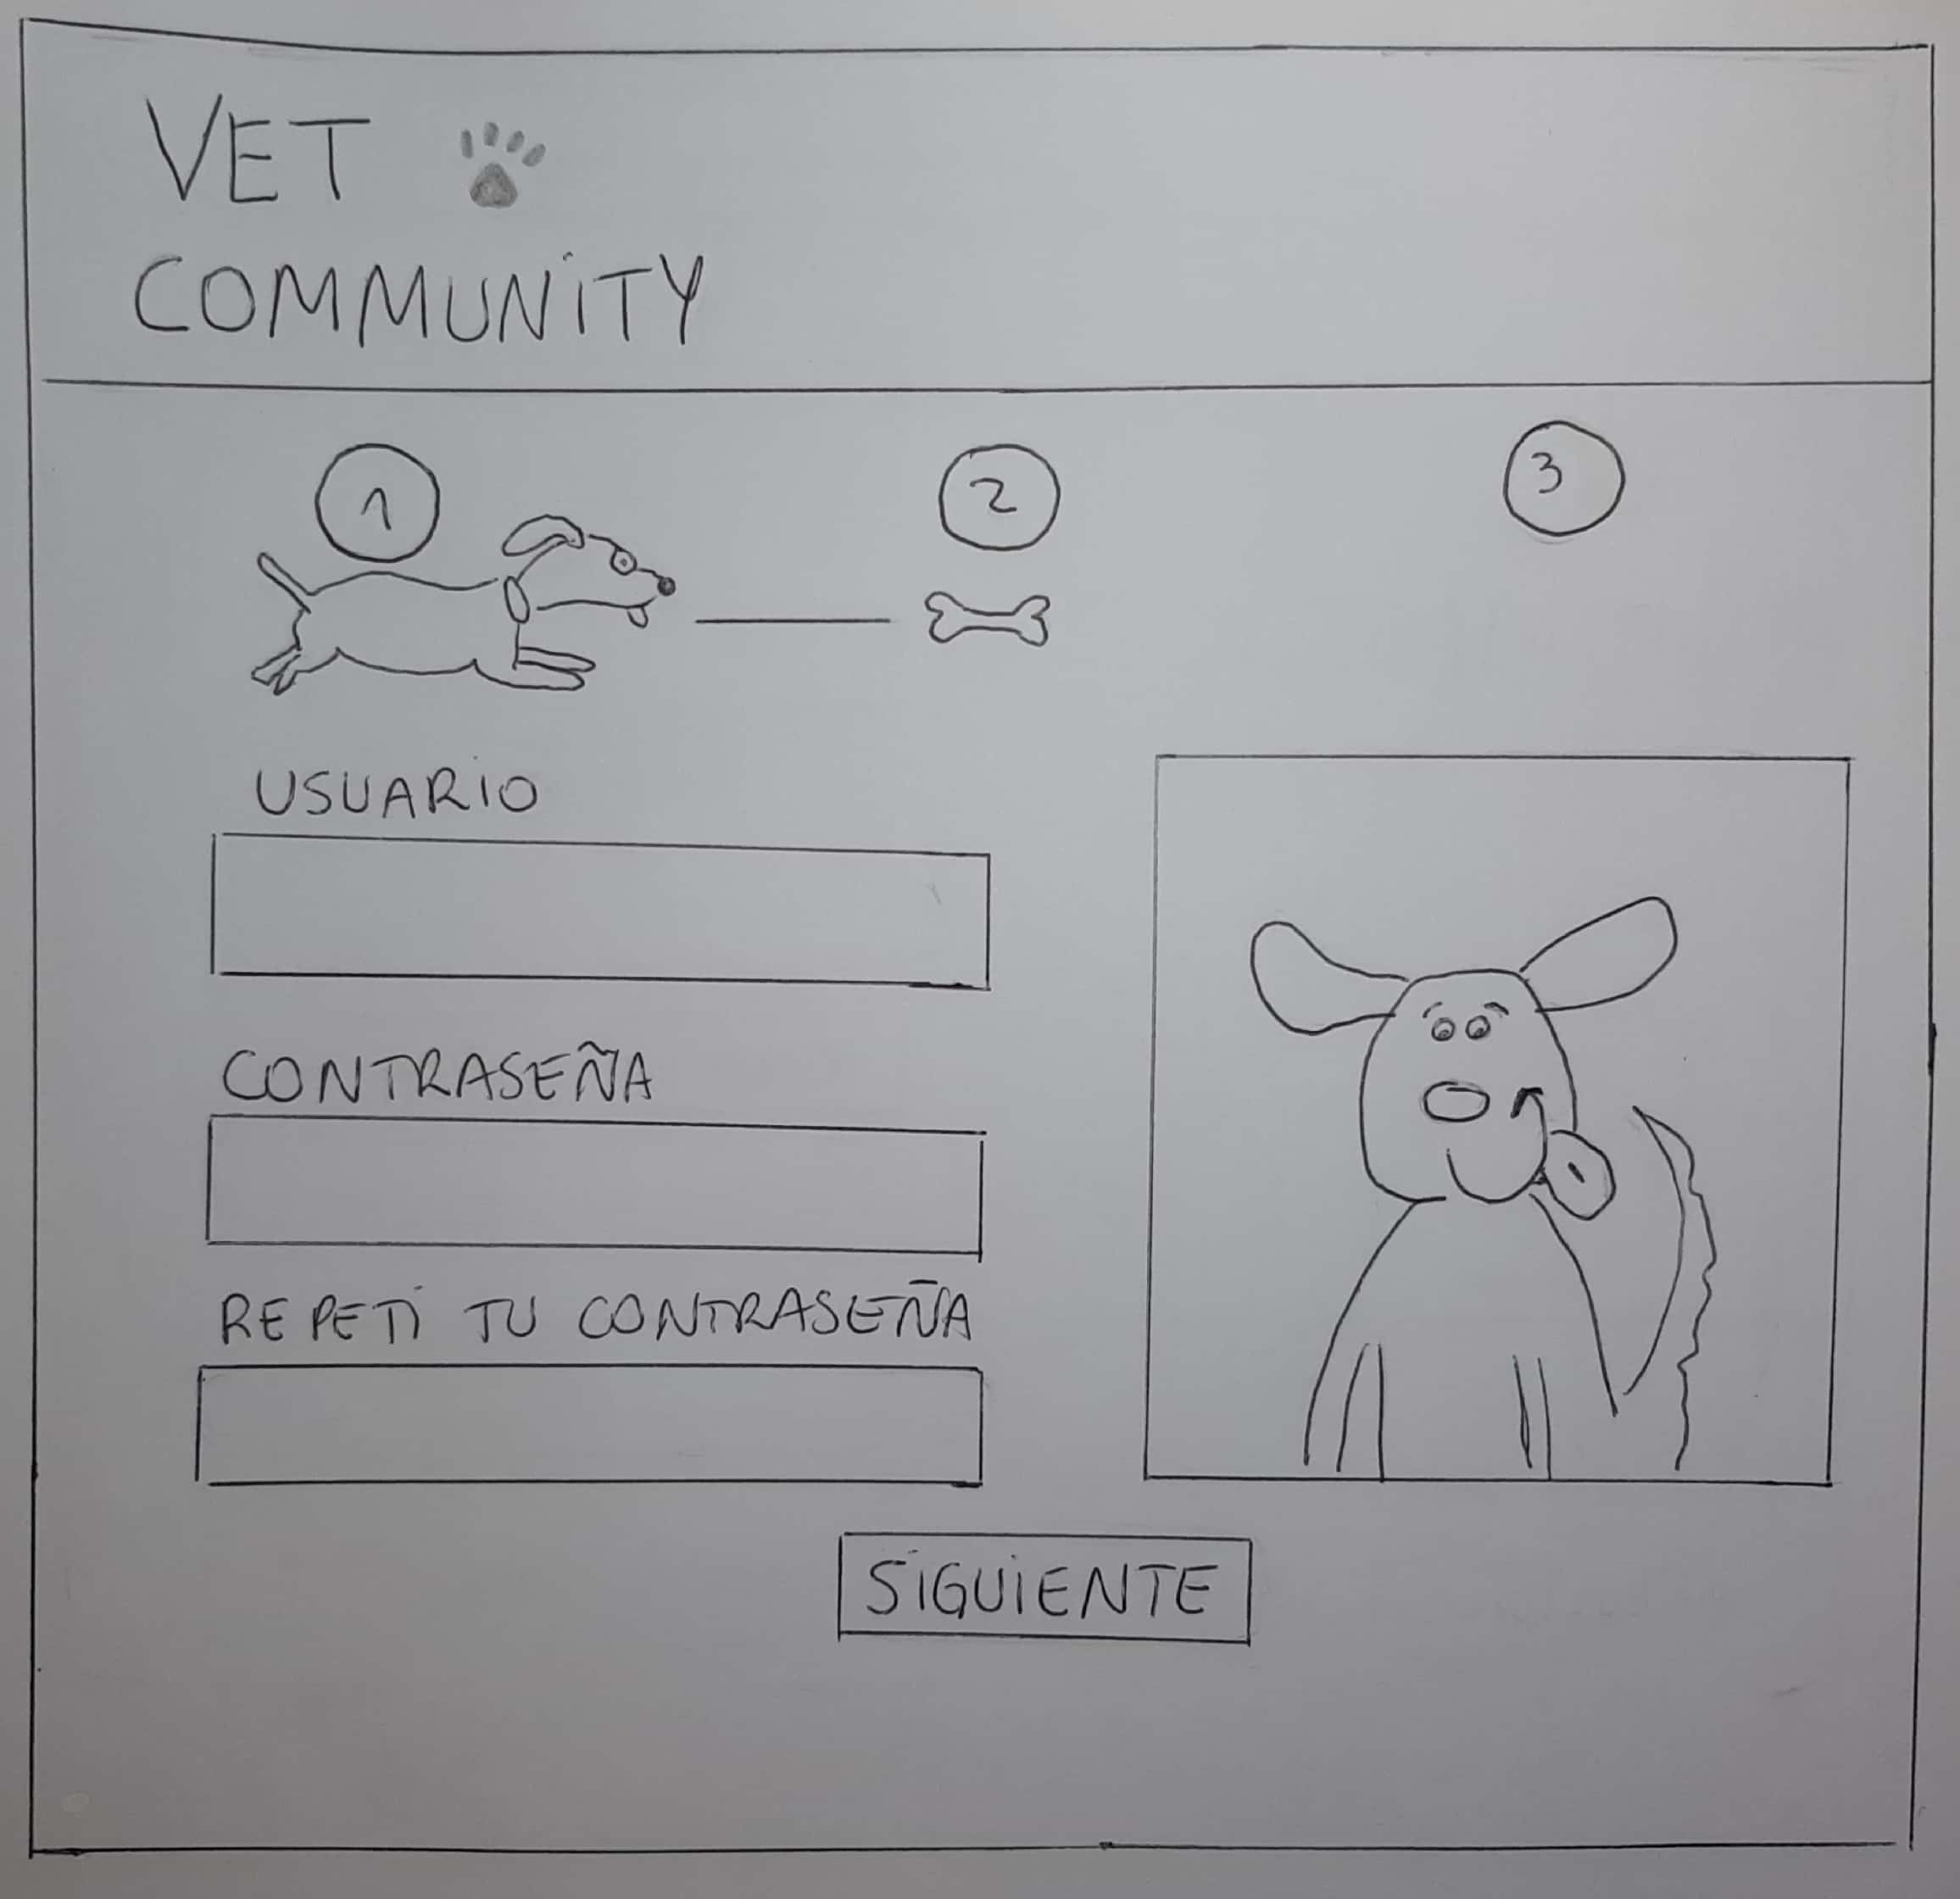 VET
COMMUNITY
1 2 3
USUARIO
CONTRASEÑA
REPETÍ TU CONTRASEÑA
SIGUIENTE